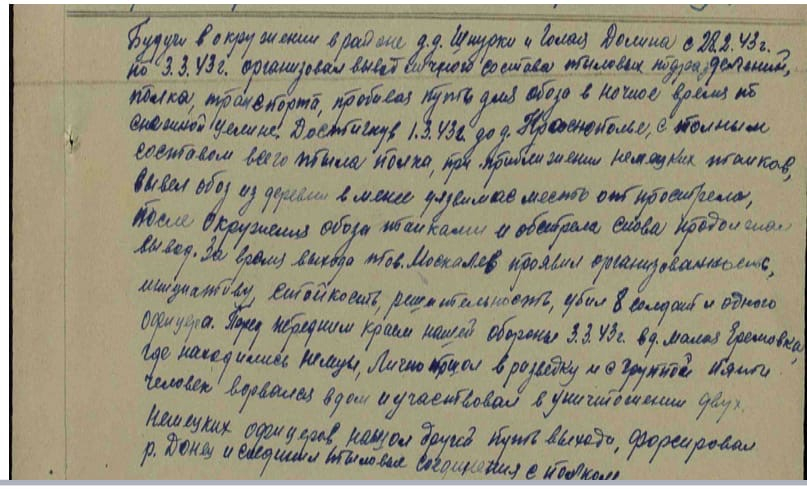 Будучи в окружении в районе д.д. Шнурки и Голая Долина с 28.2.43г.
по 3.3.43г. организовал вывод личного состава тыловых подразделений,
полка, транспорта, пробивая путь для обоза в ночное время по
снежной целине. Достигнув 1.3.43г. до д. Краснополье, с полным
составом всего тыла полка, при приближении немецких танков,
вывел обоз из деревни в менее уязвимое место от прострела,
после окружения обоза танками и обстрела снова продолжал
вывод. За время выхода тов. Москалев проявил организованность,
инициативу, стойкость, решительность, убил 8 солдат и одного
офицера. Перед передним краем нашей обороны 3.3.43г. в д. малая Еремовка,
где находились немцы, Лично пошол в разведку и с группой пяти
человек ворвался в дом и участвовал в уничтожении двух
немецких офицеров, нашол другой путь выхода, форсировал
р. Донец и соединил тыловые соединения с полком.